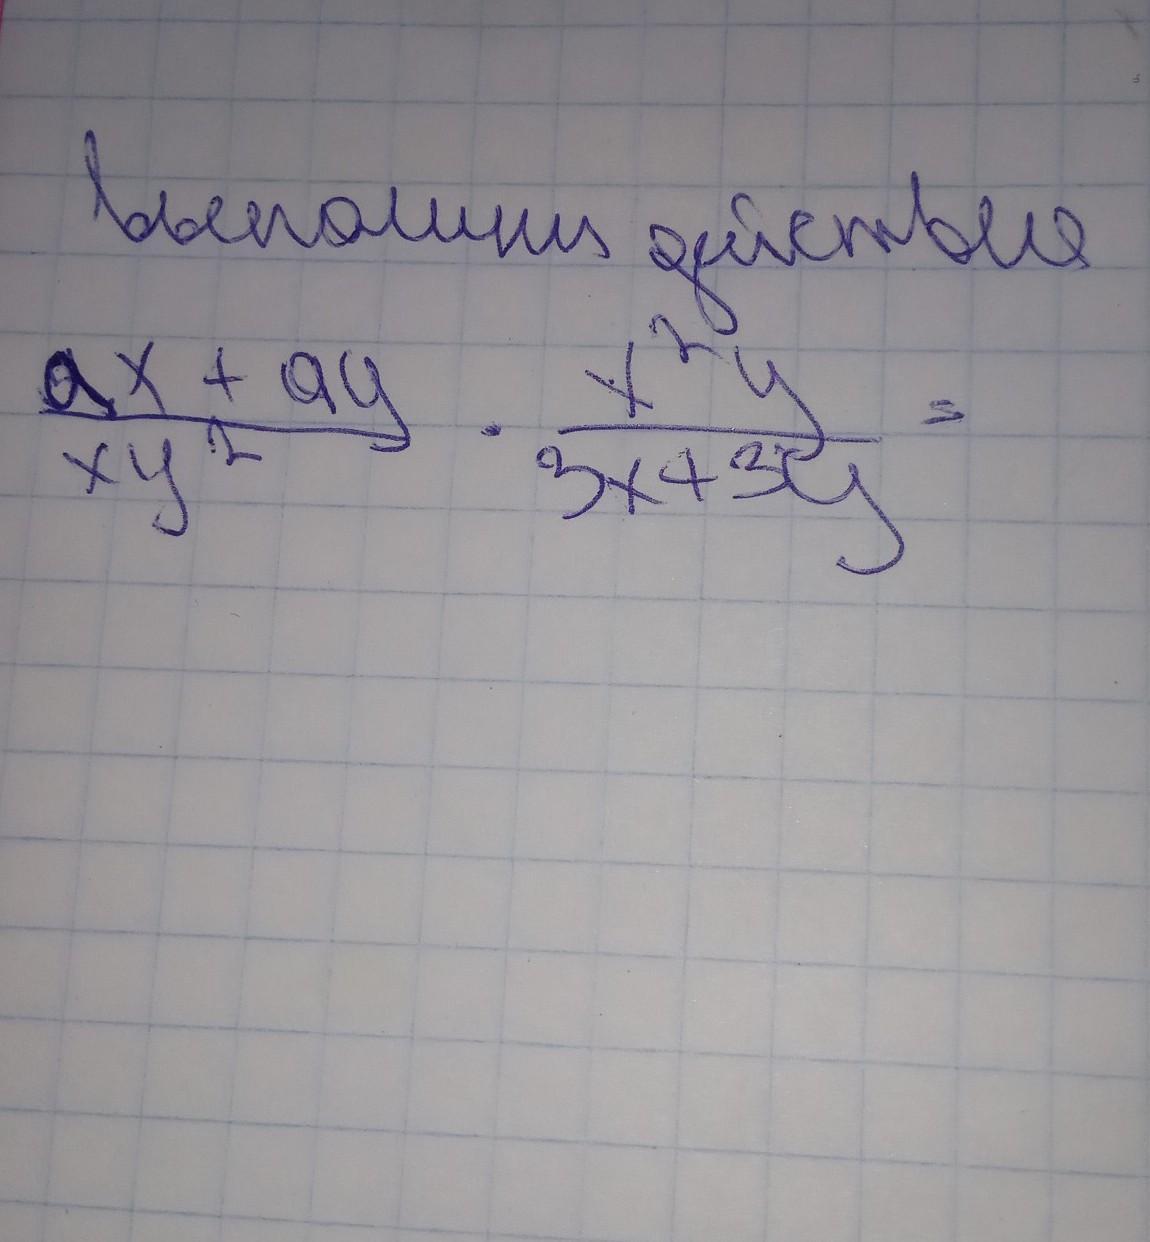 выполни действие
ax + ay / xy² · x²y / 3x+3y =